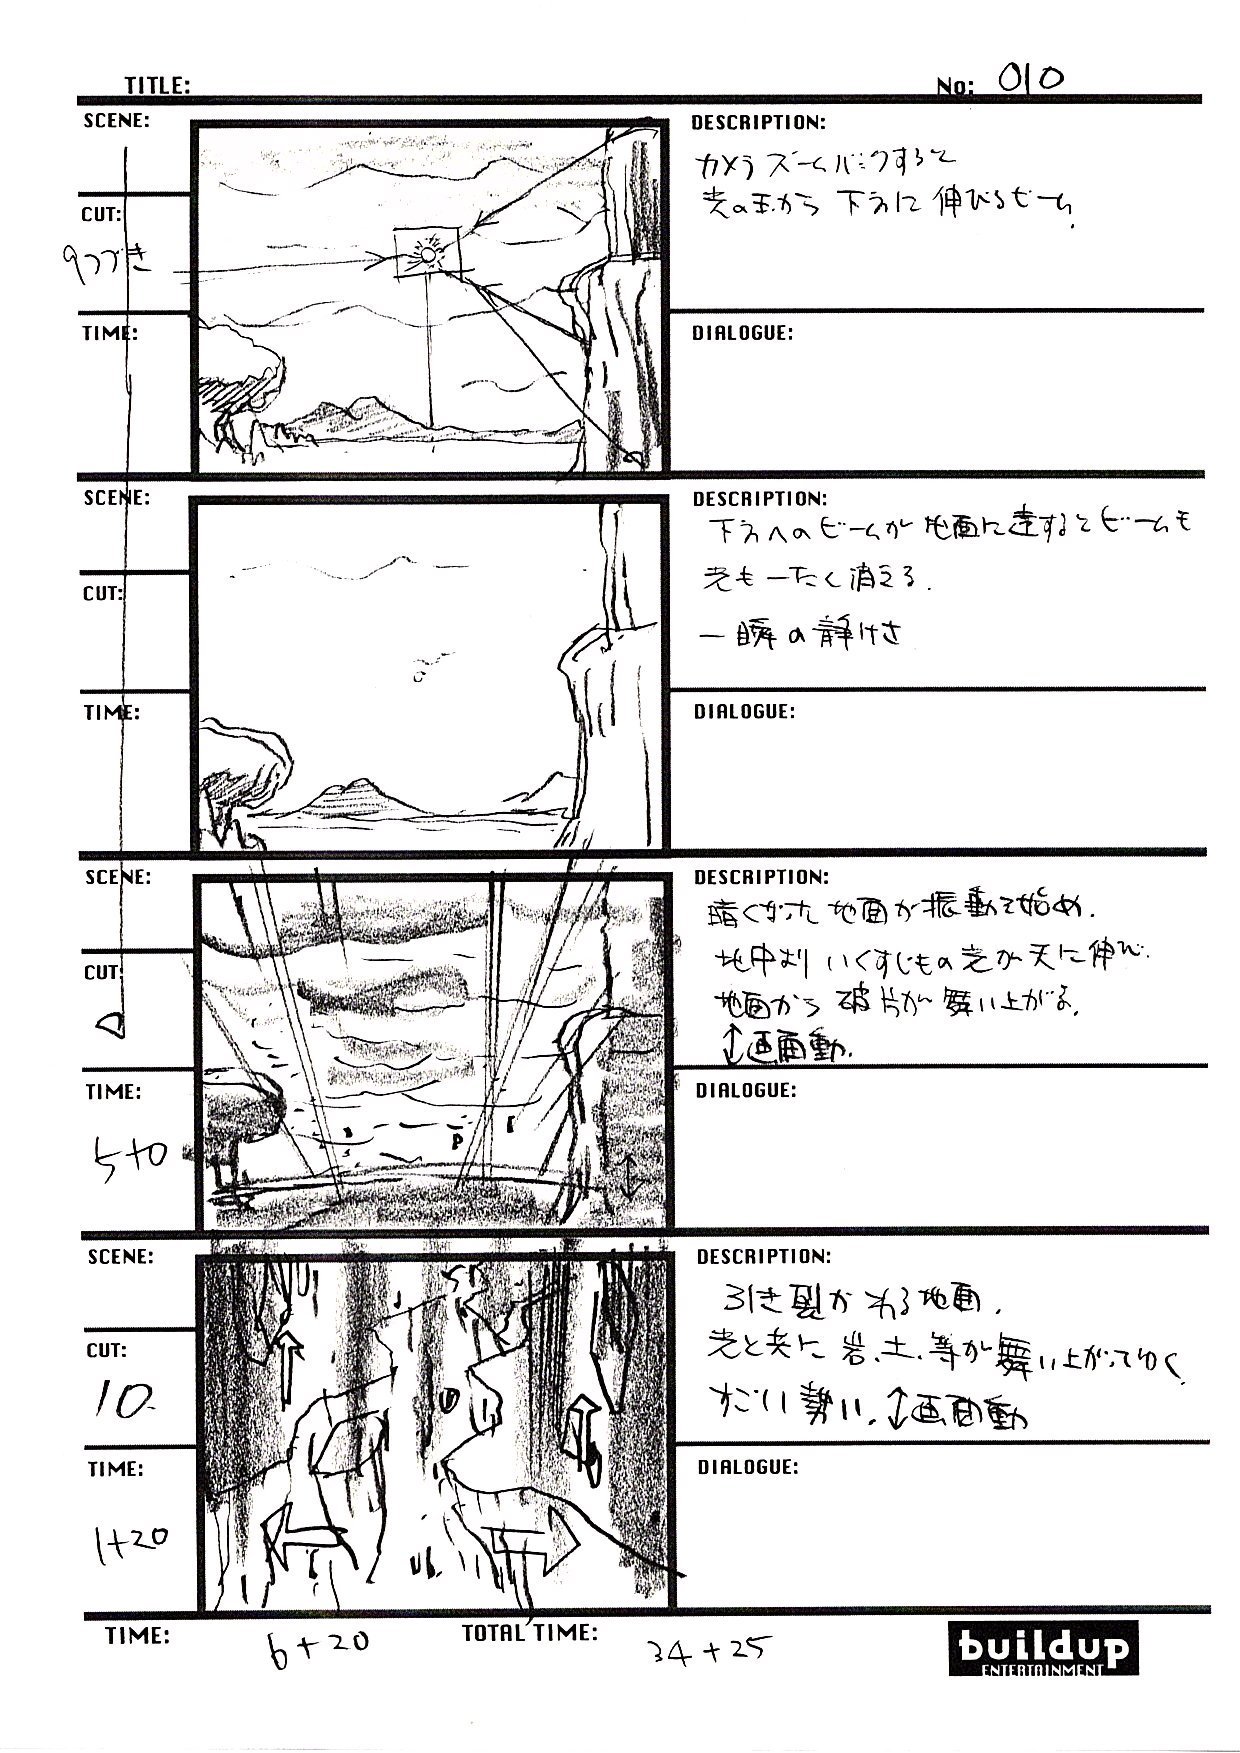 TITLE:
No: 010
SCENE:
CUT:
9つづき
TIME:
DESCRIPTION:
カメラズームバックすると
光の玉から 下方に 伸びるビーム.
DIALOGUE:
SCENE:
CUT:
TIME:
DESCRIPTION:
下方へのビームが 地面に達するとビームも
光も一たく消える.
一瞬の静けさ
DIALOGUE:
SCENE:
CUT:
TIME:
5+0
DESCRIPTION:
暗くなった 地面が振動で始め.
地中より いくすじもの光が天に伸び.
地面から 破片が 舞い上がる.
↕画面動.
DIALOGUE:
SCENE:
CUT:
10.
TIME:
1+20
DESCRIPTION:
引き裂かれる地面.
光と共に 岩.土.等が舞い上がってゆく
すごい勢い. ↕画面動
DIALOGUE:
TIME: 6+20
TOTAL TIME: 34+25
buildup
ENTERTAINMENT